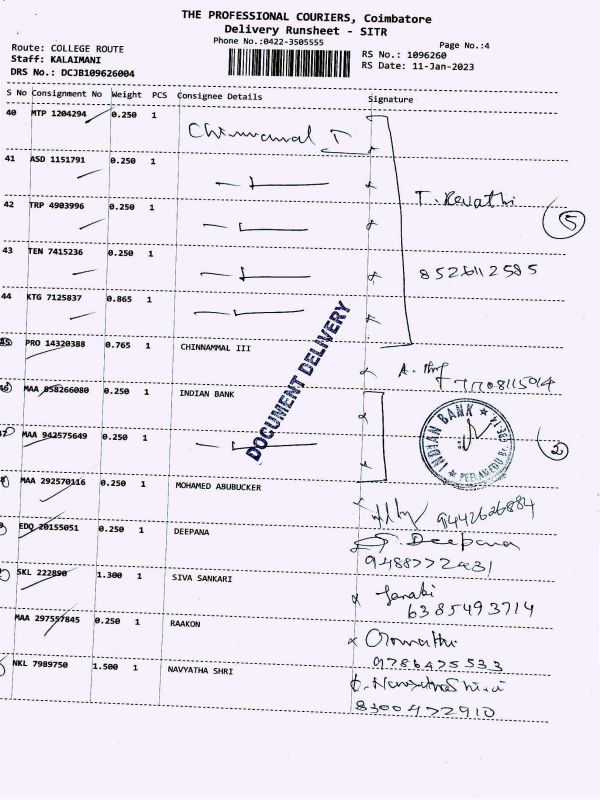 THE PROFESSIONAL COURIERS, Coimbatore
Delivery Runsheet - SITR
Phone No.:0422-3505555
Page No.:4
Route: COLLEGE ROUTE
Staff: KALAIMANI
DRS No.: DCJB109626004
RS No.: 1096260
RS Date: 11-Jan-2023
S No Consignment No Weight PCS Consignee Details Signature
40 MTP 1204294 0.250 1
41 ASD 1151791 0.250 1
T. Revathi
5
42 TRP 4903996 0.250 1
43 TEN 7415236 0.250 1
8526112585
44 KTG 7125837 0.865 1
45 PRO 14320388 0.765 1 CHINNAMMAL III
DOCUMENT DELIVERY
46 MAA 858266080 0.250 1 INDIAN BANK
INDIAN BANK
47 MAA 942575649 0.250 1
2
MAA 292570116 0.250 1 MOHAMED ABUBUCKER
9442626884
EDQ 20155051 0.250 1 DEEPANA
Deepana
9488772431
SKL 222890 1.300 1 SIVA SANKARI
Janaki
6385493714
MAA 297557845 0.250 1 RAAKON
9786475533
NKL 7989750 1.500 1 NAVYATHA SHRI
8300472910